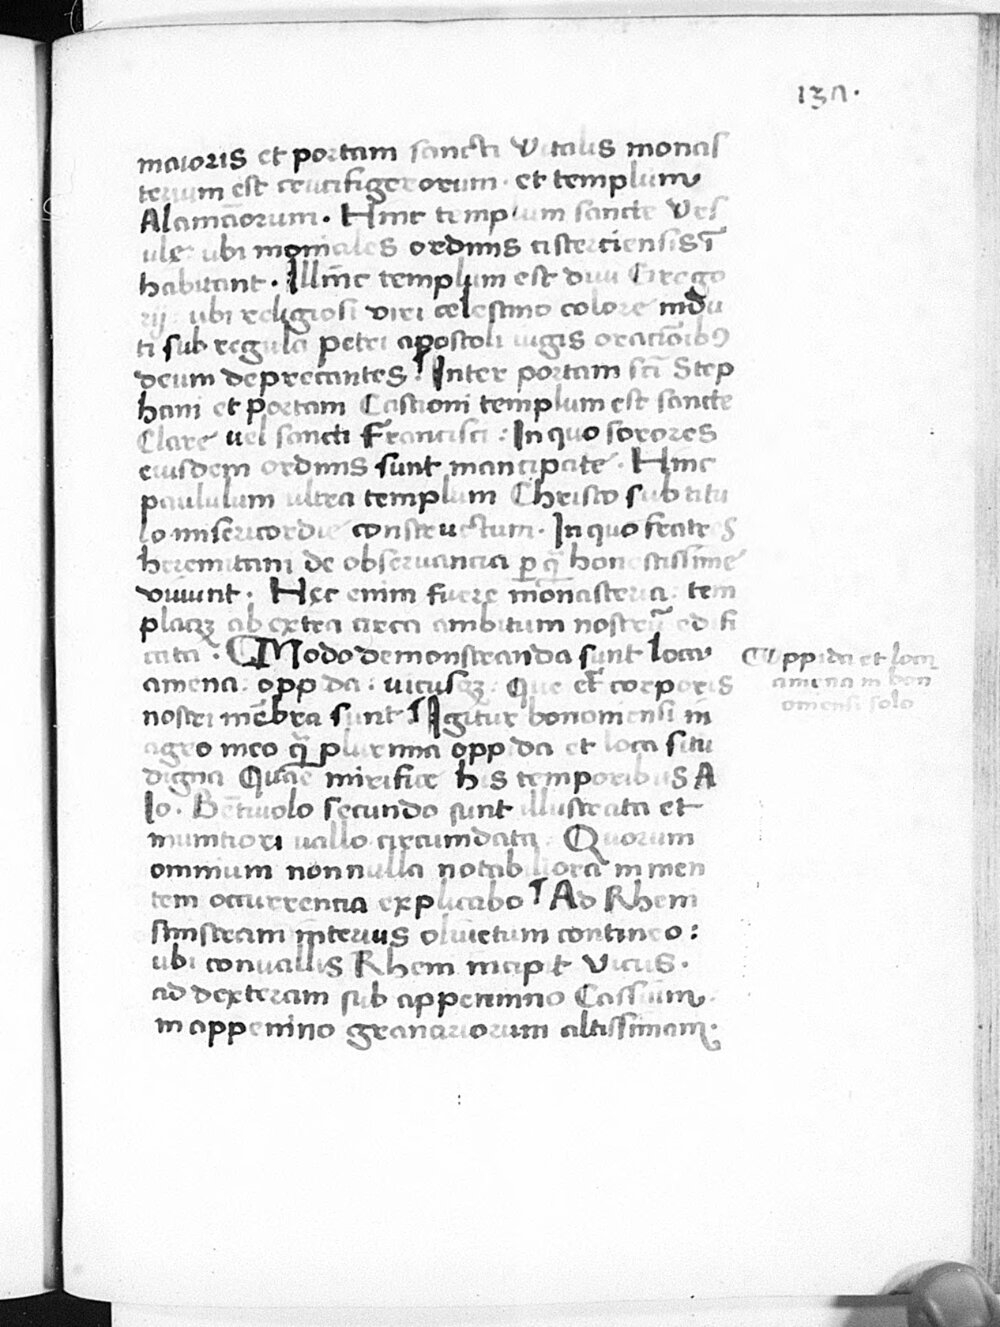 137.
maioris et portam sancti Vitalis monas
terium est crucifigerorum. et templum
Alamãorum. Hinc templum sancte Ves
ule: ubi moniales ordinis cisterciensis ĩ
habitant. Illinc templum est divi Grego
rij: ubi religiosi viri celestino colore indu
ti sub regula petri apostoli iugis oraciõib9
deum deprecantes. Inter portam scti Step
hani et portam Castioni templum est sancte
Clare vel sancti Francisci: In quo sorores
eiusdem ordinis sunt mancipate. Hinc
paululum ultra templum Christo sub titu
lo misericordie constructum. In quo fratres
heremitani de observancia p q̃ honestissime
vivunt. Hec enim fuere monasteria: tem
plaqꝫ ab extra circa ambitum nostrũ edifi
cata. Modo demonstranda sunt loca
amena: oppida: vicusqꝫ. Que et corporis
nostri mẽbra sunt Igitur bononiensi in
agro meo q̃ plurima oppida et loca situ
digna Quae mirifice his temporibus A
Io. Bẽtivolo secundo sunt illustrata et
munitiori vallo circumdata. Quorum
omnium nonnulla notabiliora in men
tem occurrencia explicabo Ad Rhem
sinistram interius olivetum contineo:
ubi convallis Rhem incipit Vicus.
ad dexteram sub appennino Cassium.
in appenino granariorum altissimam.
Oppida et loca
amena in bon
oniensi solo